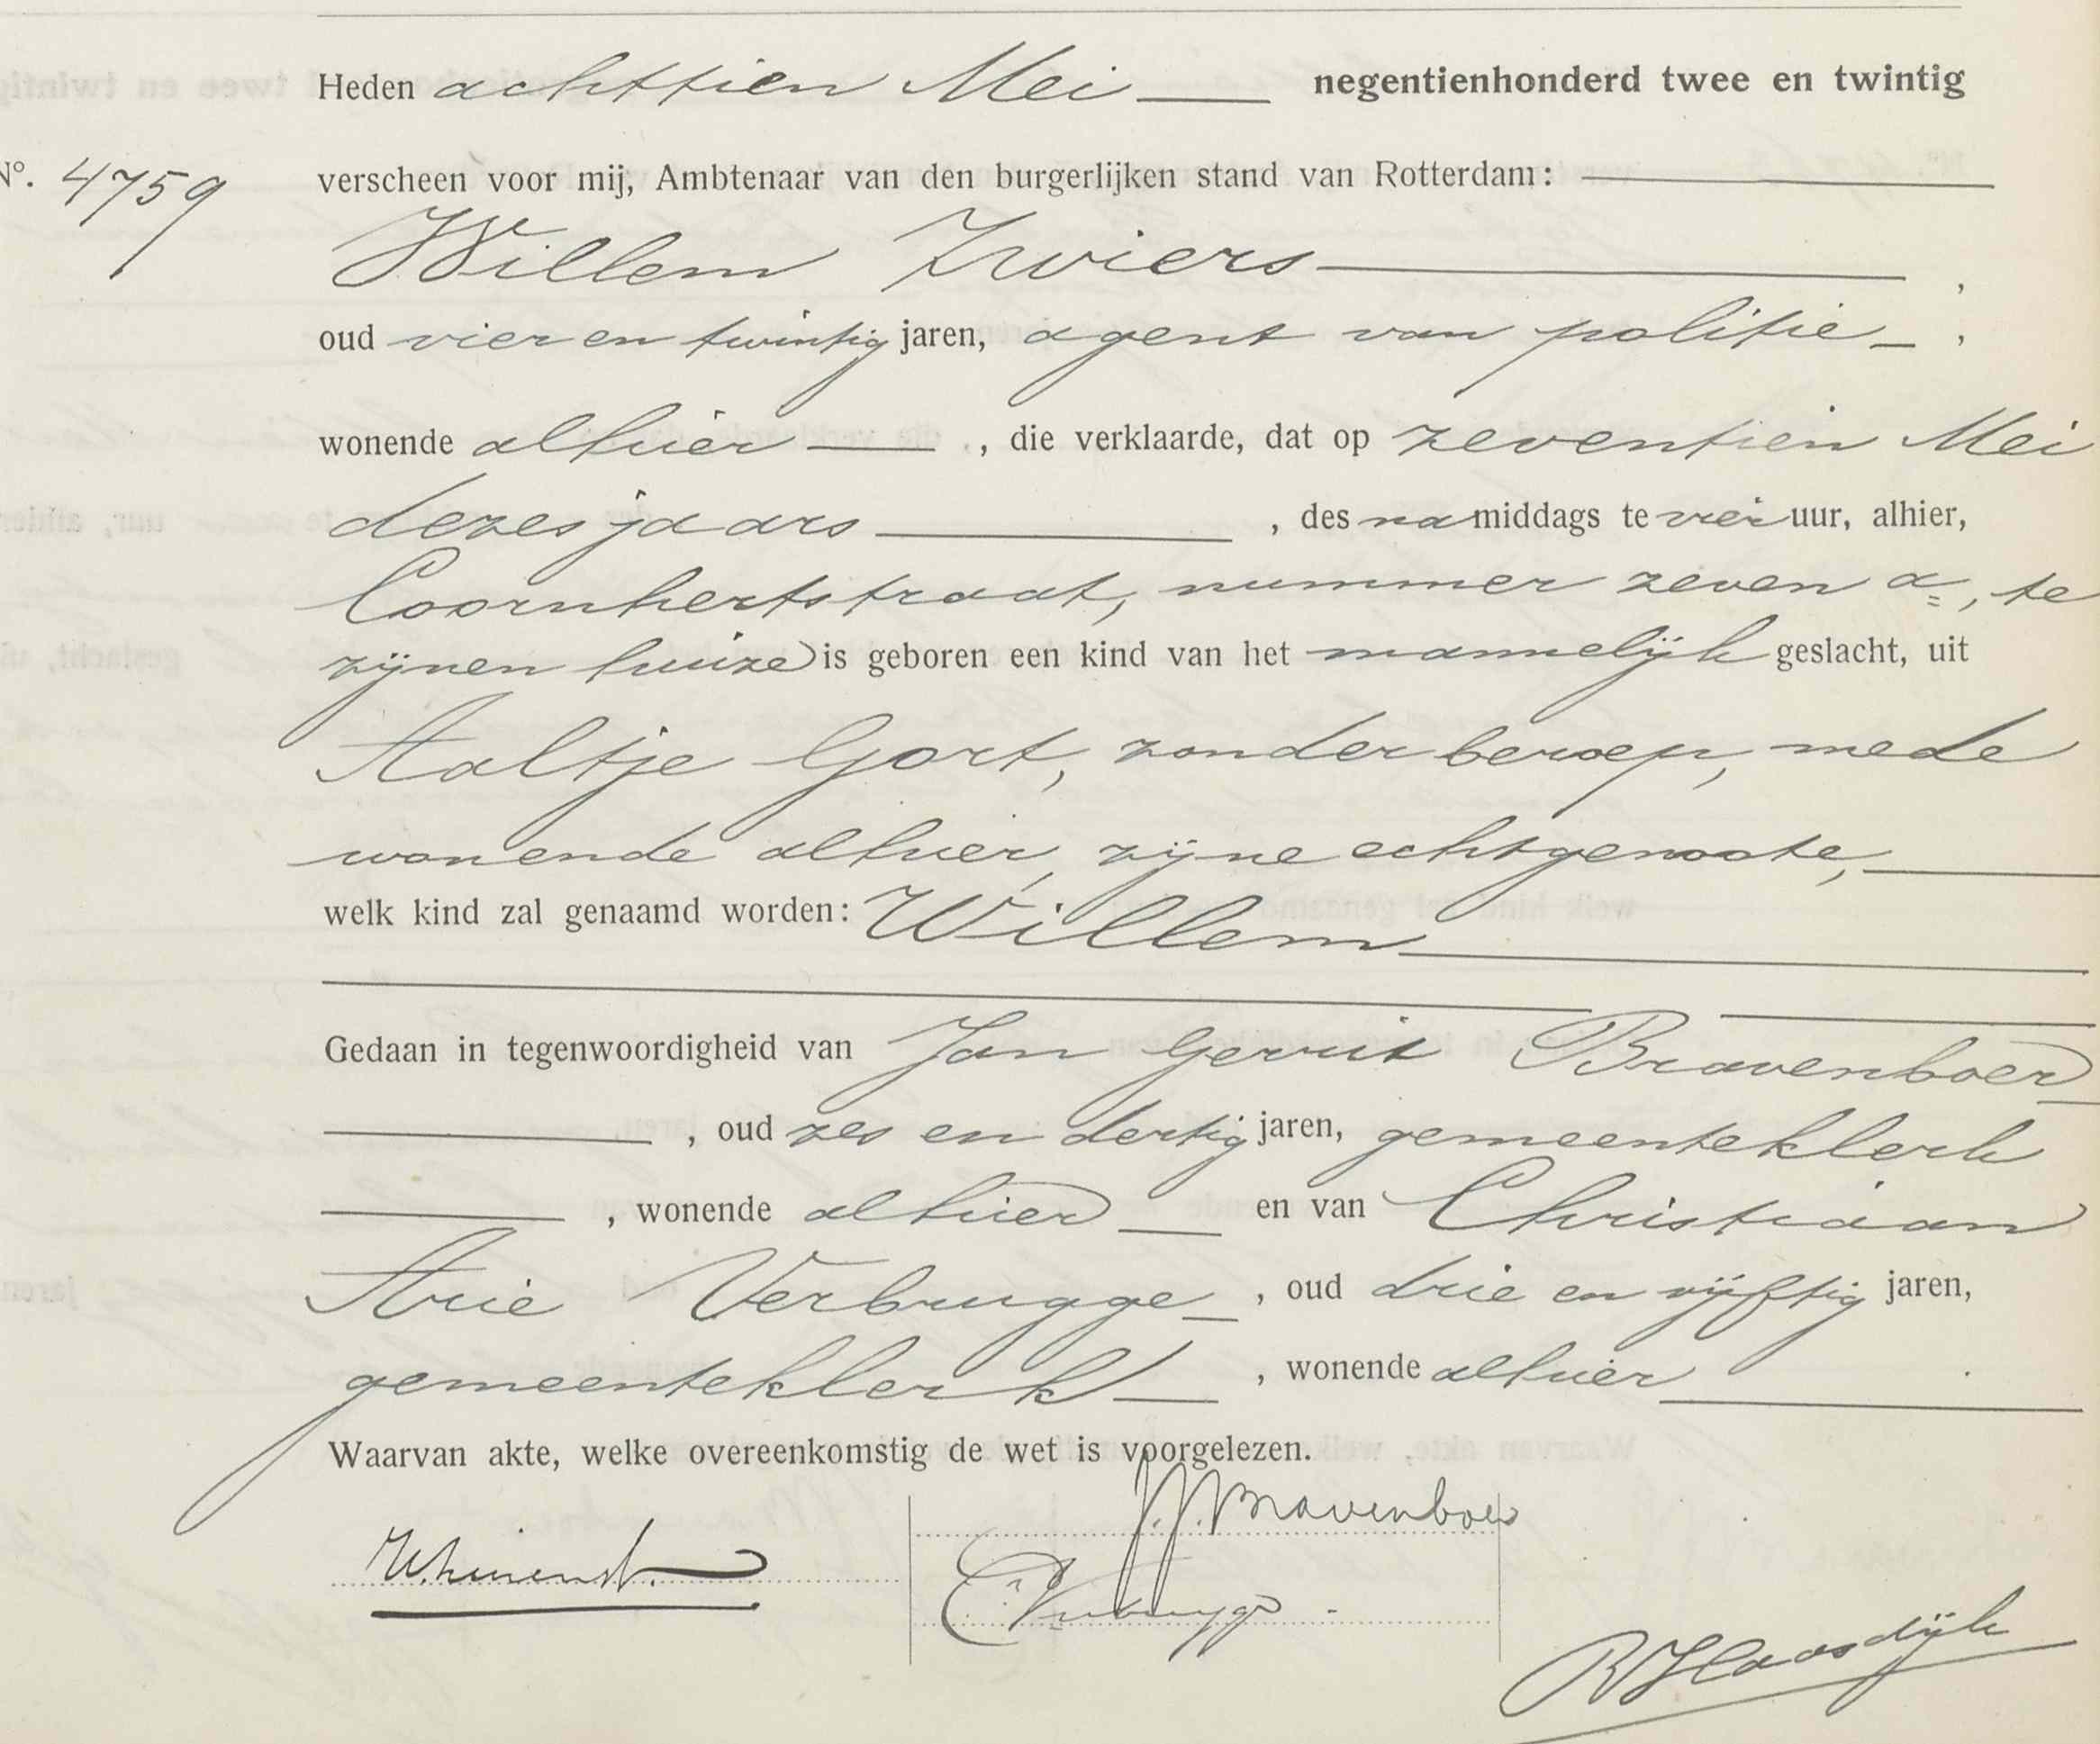 Heden achttien Mei negentienhonderd twee en twintig
No. 4759 verscheen voor mij, Ambtenaar van den burgerlijken stand van Rotterdam:
Willem Zwiers,
oud vier en twintig jaren, agent van politie,
wonende alhier, die verklaarde, dat op zeventien Mei
dezes jaars, des namiddags te vier uur, alhier,
Coornhertstraat, nummer zeven a, te
zijnen huize is geboren een kind van het mannelijk geslacht, uit
Aaltje Gort, zonder beroep, mede
wonende alhier, zijne echtgenoote,
welk kind zal genaamd worden: Willem
Gedaan in tegenwoordigheid van Jan Gerrit Bravenboer
, oud zes en dertig jaren, gemeenteklerk
, wonende alhier en van Christiaan
Arie Verbrugge, oud drie en vijftig jaren,
gemeenteklerk, wonende alhier.
Waarvan akte, welke overeenkomstig de wet is voorgelezen.
J.G. Bravenboer
C Verbrugge